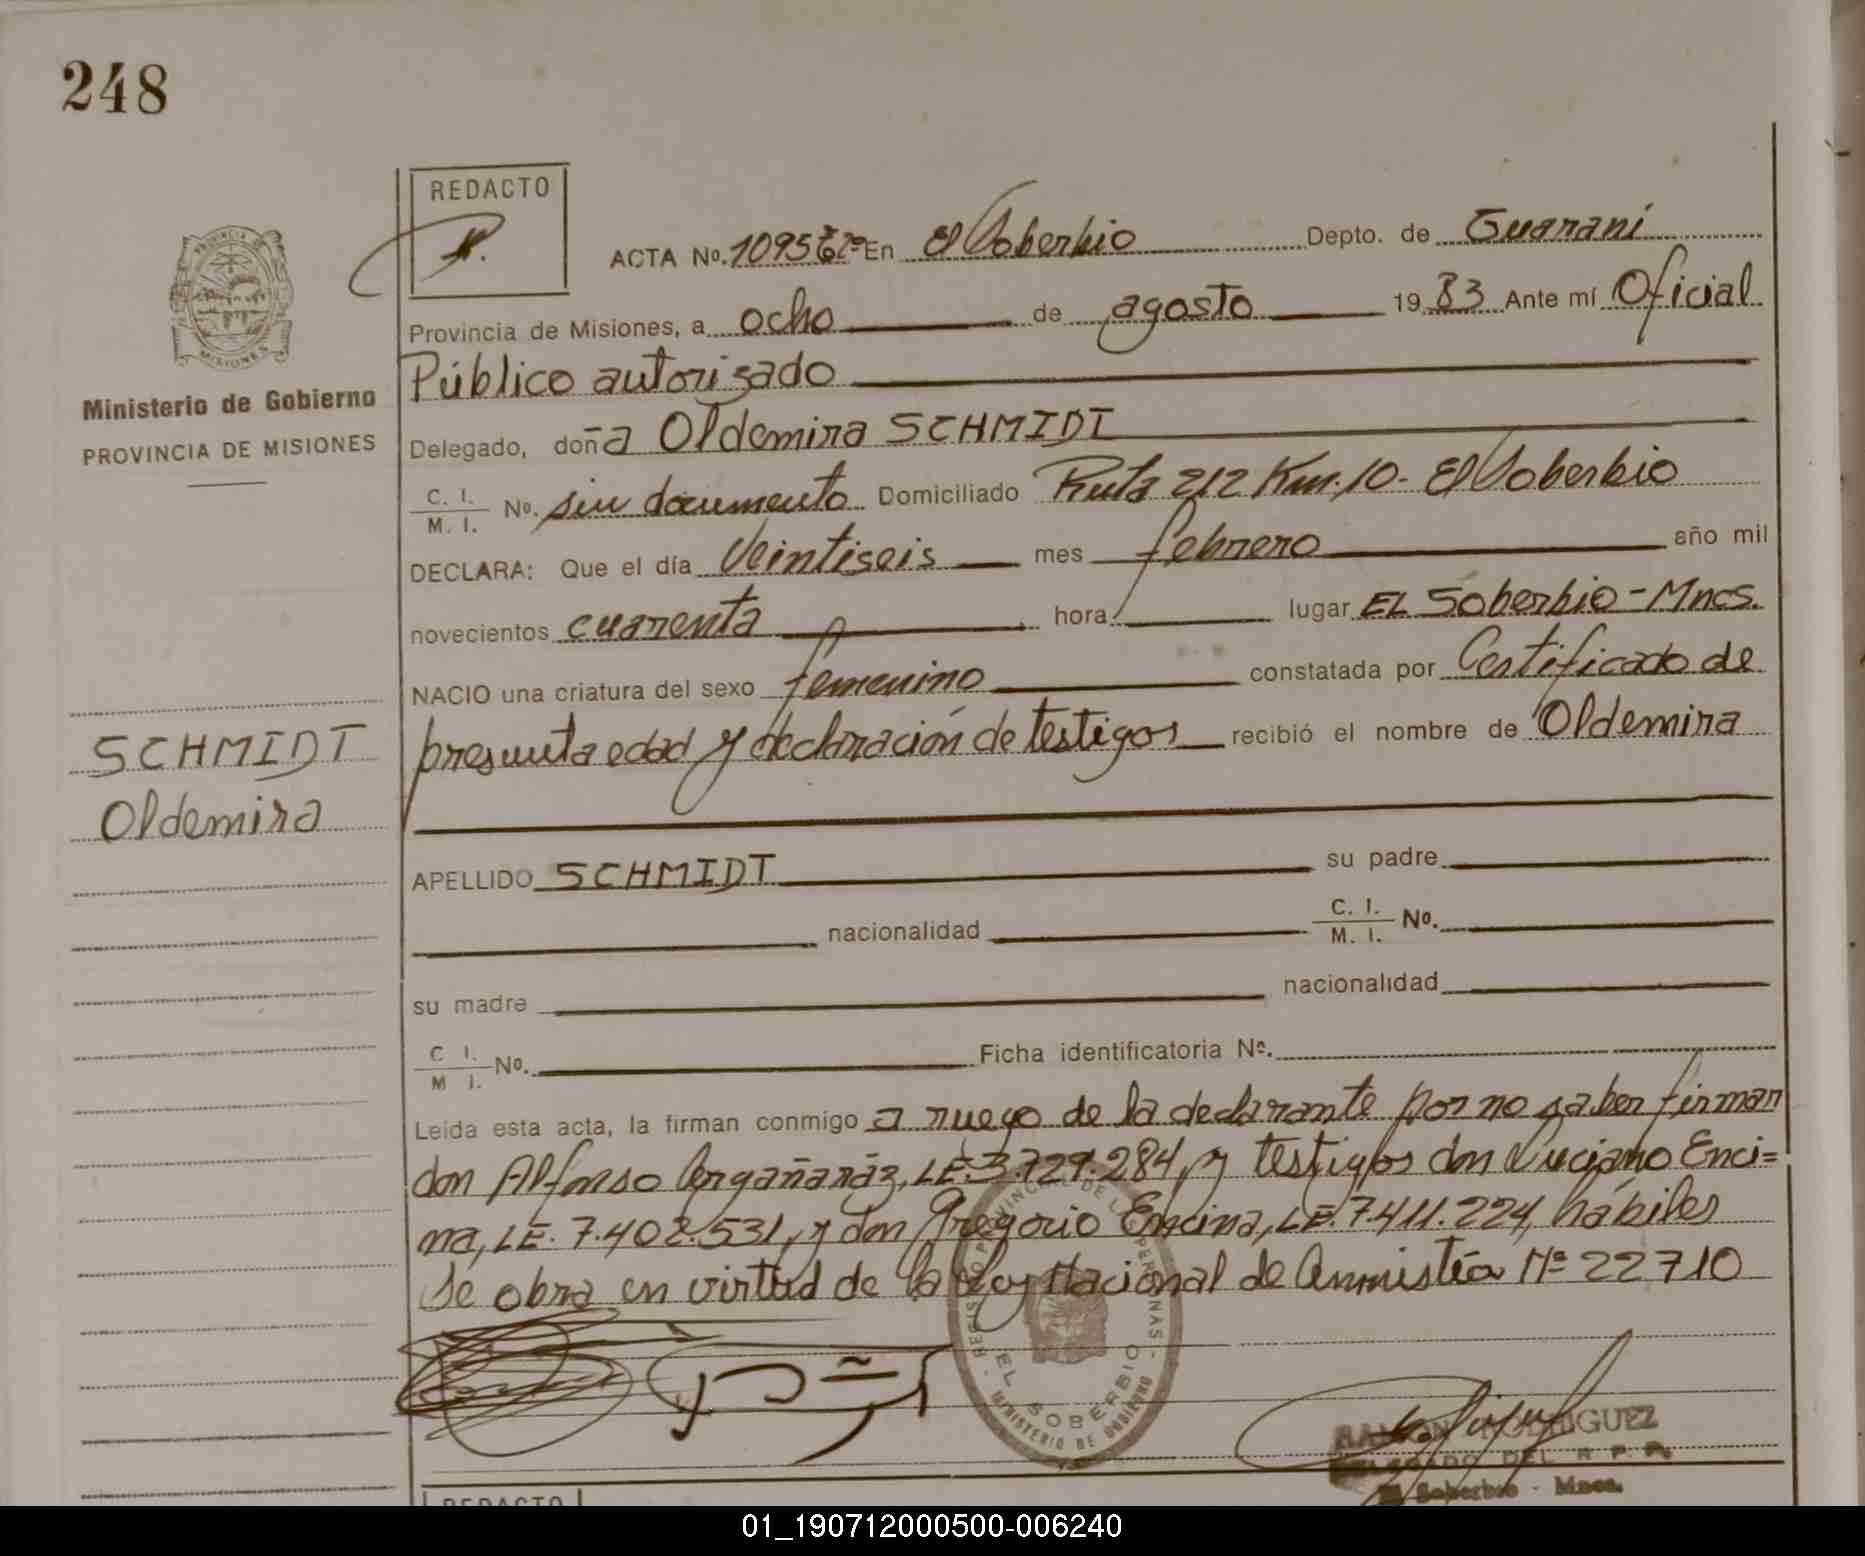 248
REDACTO
ACTA Nº. 1095 En El Soberbio Depto. de Guaraní
Provincia de Misiones, a ocho de agosto 19 83 Ante mí Oficial
Público autorizado
Ministerio de Gobierno
PROVINCIA DE MISIONES
Delegado, doña Oldemira SCHMIDT
C. I.
M. I. Nº. sin documento Domiciliado Ruta 212 Km. 10 - El Soberbio
DECLARA: Que el día Veintiseis mes febrero año mil
novecientos cuarenta hora lugar EL Soberbio - Mnes.
NACIO una criatura del sexo femenino constatada por Certificado de
presunta edad y declaración de testigos recibió el nombre de Oldemira
SCHMIDT
Oldemira
APELLIDO SCHMIDT su padre
nacionalidad C. I.
M. I. Nº.
su madre nacionalidad
C I.
M I. Nº. Ficha identificatoria Nº.
Leída esta acta, la firman conmigo a ruego de la declarante por no saber firmar
don Alfonso Argañaráz, LE. 3.729.284, y testigos don Luciano Enci=
na, LE. 7.402.531, y don Gregorio Encina, LE. 7.411.224, hábiles
Se obra en virtud de la Ley Nacional de Amnistía Nº 22710
EL SOBERBIO
MINISTERIO DE GOBIERNO
RAMON RODRIGUEZ
DELEGADO DEL R. P. P.
El Soberbio - Mnes.
REDACTO
01_190712000500-006240